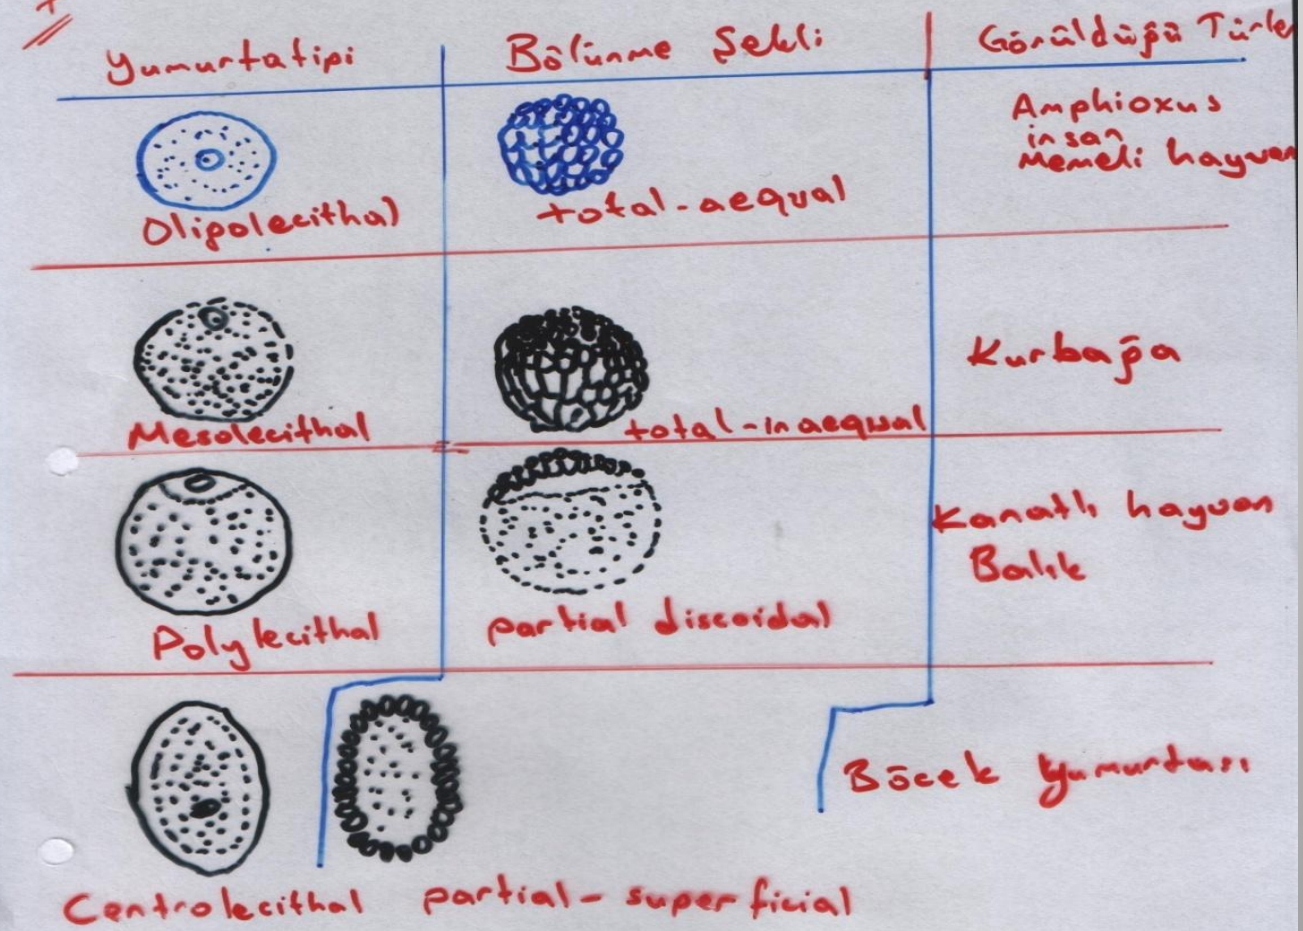 Yumurtatipi
Bölünme Şekli
Görüldüğü Türle
Oligolecithal
total-aequal
Amphioxus
insan
Memeli hayvan
Mesolecithal
total-inaequal
Kurbağa
Polylecithal
partial discoidal
Kanatlı hayvan
Balık
Centrolecithal
partial-superficial
Böcek yumurtası